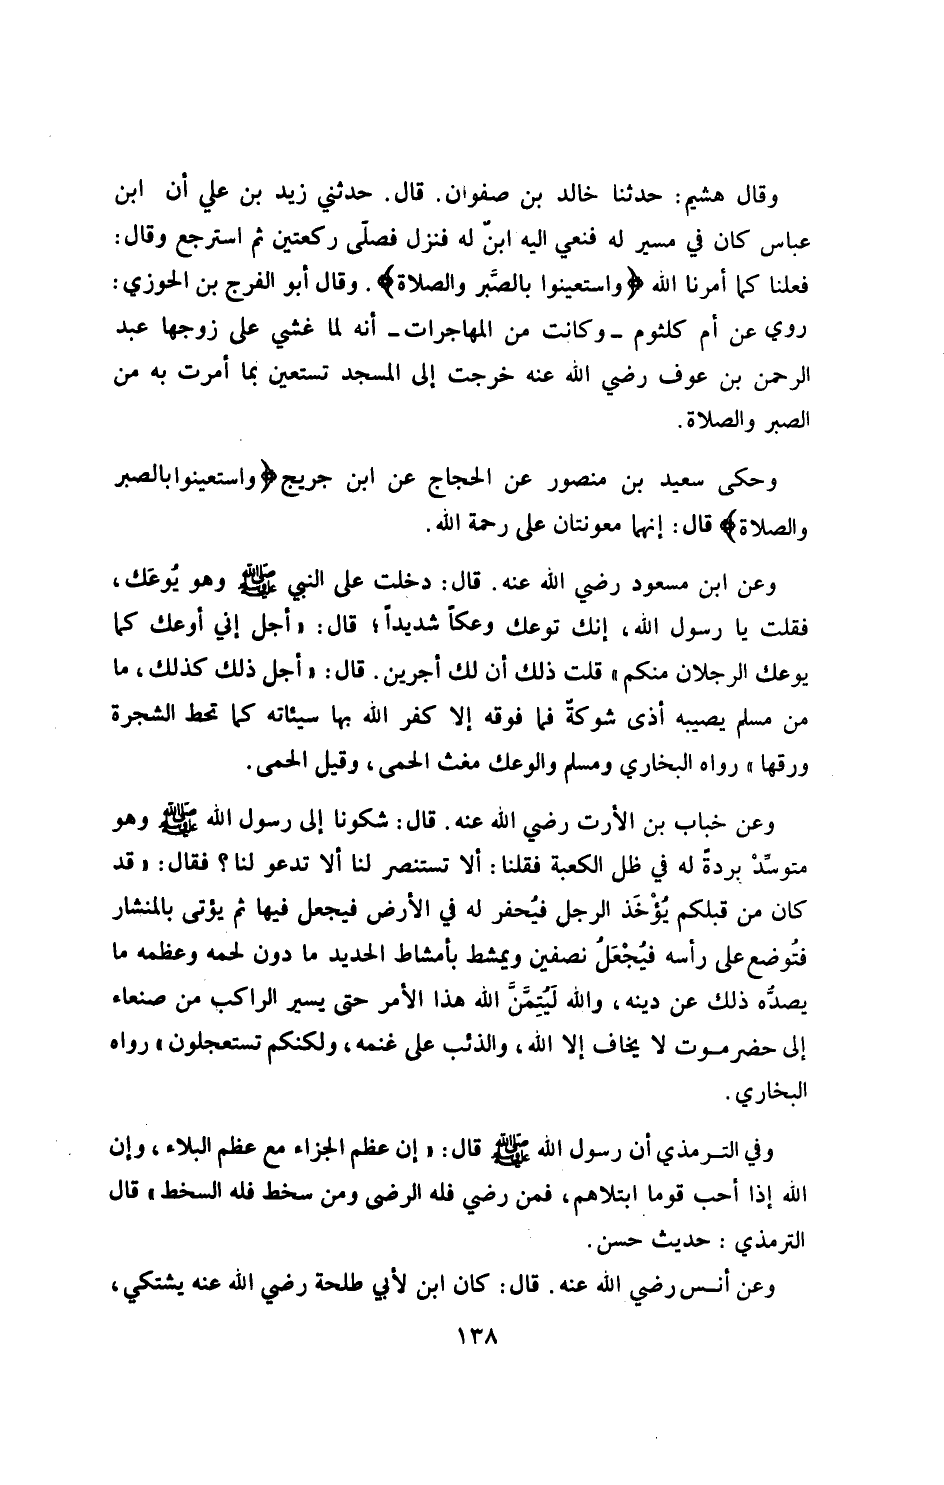 وقال هشيم: حدثنا خالد بن صفوان. قال. حدثني زيد بن علي أن ابن
عباس كان في مسير له فنعي اليه ابنٌ له فنزل فصلّى ركعتين ثم استرجع وقال:
فعلنا كما أمرنا الله ﴿واستعينوا بالصَّبر والصلاة﴾. وقال أبو الفرج بن الحوزي:
روي عن أم كلثوم ـ وكانت من المهاجرات ـ أنه لما غشي على زوجها عبد
الرحمن بن عوف رضي الله عنه خرجت إلى المسجد تستعين بما أمرت به من
الصبر والصلاة.
وحكى سعيد بن منصور عن الحجاج عن ابن جريج ﴿واستعينوا بالصبر
والصلاة﴾ قال: إنهما معونتان على رحمة الله.
وعن ابن مسعود رضي الله عنه. قال: دخلت على النبي ﷺ وهو يُوعَك،
فقلت يا رسول الله، إنك توعك وعكاً شديداً؛ قال: «أجل إني أوعك كما
يوعك الرجلان منكم» قلت ذلك أن لك أجرين. قال: «أجل ذلك كذلك، ما
من مسلم يصيبه أذى شوكةٌ فما فوقه إلا كفر الله بها سيئاته كما تحط الشجرة
ورقها» رواه البخاري ومسلم والوعك مغث الحمى، وقيل الحمى.
وعن خباب بن الأرت رضي الله عنه. قال: شكونا إلى رسول الله ﷺ وهو
متوسِّدْ بردةً له في ظل الكعبة فقلنا: ألا تستنصر لنا ألا تدعو لنا؟ فقال: «قد
كان من قبلكم يُؤْخَذ الرجل فيُحفر له في الأرض فيجعل فيها ثم يؤتى بالمنشار
فتُوضع على رأسه فيُجْعَلُ نصفين ويمشط بأمشاط الحديد ما دون لحمه وعظمه ما
يصدُّه ذلك عن دينه، والله لَيُتِمَّنَّ الله هذا الأمر حتى يسير الراكب من صنعاء
إلى حضرموت لا يخاف إلا الله، والذئب على غنمه، ولكنكم تستعجلون» رواه
البخاري.
وفي الترمذي أن رسول الله ﷺ قال: «إن عظم الجزاء مع عظم البلاء، وإن
الله إذا أحب قوما ابتلاهم، فمن رضي فله الرضى ومن سخط فله السخط» قال
الترمذي: حديث حسن.
وعن أنس رضي الله عنه. قال: كان ابن لأبي طلحة رضي الله عنه يشتكي،
١٣٨